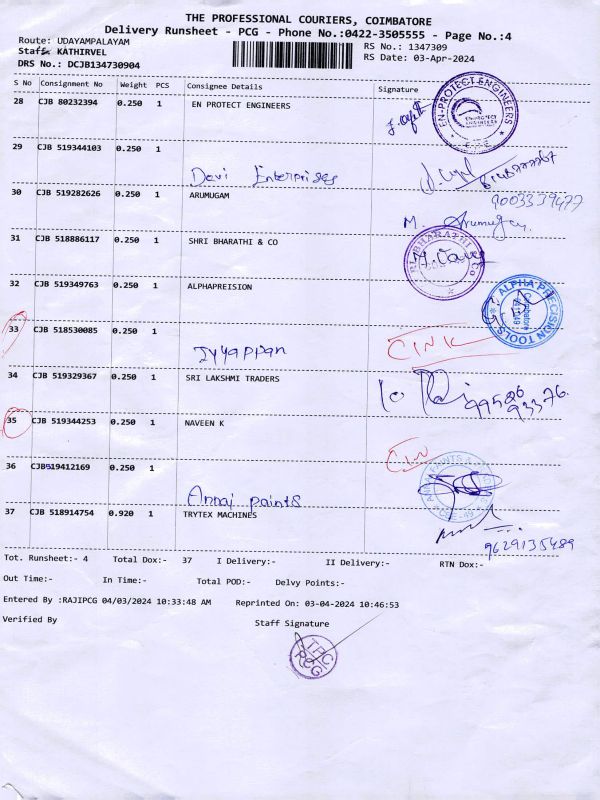 THE PROFESSIONAL COURIERS, COIMBATORE
Delivery Runsheet - PCG - Phone No.:0422-3505555 - Page No.:4
Route: UDAYAMPALAYAM
RS No.: 1347309
Staff: KATHIRVEL
RS Date: 03-Apr-2024
DRS No.: DCJB134730904
S No Consignment No Weight PCS Consignee Details Signature
28 CJB 80232394 0.250 1 EN PROTECT ENGINEERS
EN-PROTECT ENGINEERS
29 CJB 519344103 0.250 1
Devi Enterprises
30 CJB 519282626 0.250 1 ARUMUGAM
9003339477
M. Arumugam
31 CJB 518886117 0.250 1 SHRI BHARATHI & CO
32 CJB 519349763 0.250 1 ALPHAPREISION
ALPHA PRECISION TOOLS
33 CJB 518530085 0.250 1
Iyyappan
34 CJB 519329367 0.250 1 SRI LAKSHMI TRADERS
99526
93376
35 CJB 519344253 0.250 1 NAVEEN K
36 CJB519412169 0.250 1
Annai paints
37 CJB 518914754 0.920 1 TRYTEX MACHINES
9629135489
Tot. Runsheet:- 4 Total Dox:- 37 I Delivery:- II Delivery:- RTN Dox:-
Out Time:- In Time:- Total POD:- Delvy Points:-
Entered By :RAJIPCG 04/03/2024 10:33:48 AM Reprinted On: 03-04-2024 10:46:53
Verified By Staff Signature
TPC
PCG